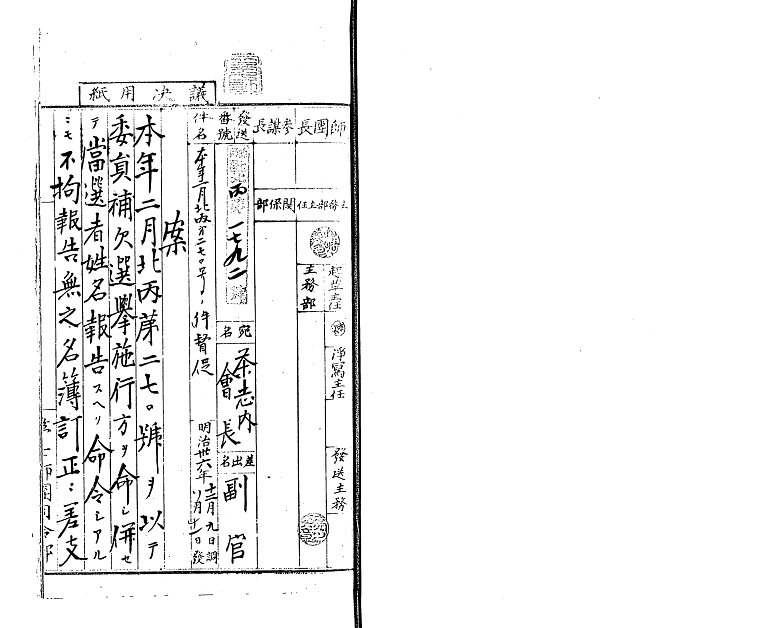 議決用紙
師團長
参謀長
主務部主任
関係部
起草主任
淨寫主任
發送主務
主務部
發送番號
丙 一七九二 號
宛名
茶志内
會長
差出名
副官
件名
本年二月北丙第二七〇号ノ件督促
明治卅六年
十二月九日調
月十一日發
案
本年二月北丙第二七〇號ヲ以テ
委員補欠選擧施行方ヲ命シ併セ
テ當選者姓名報告スヘク命令シアル
ニモ不拘報告無之名簿訂正ニ差支